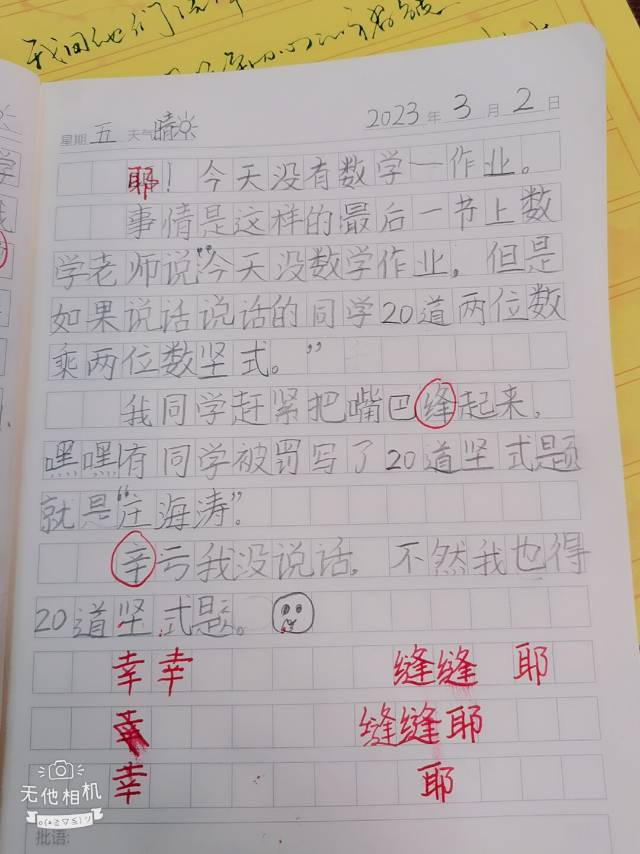 我同他们
星期 五 天气 晴 2023 年 3 月 2 日
耶！今天没有数学一作业。
事情是这样的最后一节上数
学老师说“今天没数学作业，但是
如果说话说话的同学20道两位数
乘两位数坚式。”
我同学赶紧把嘴巴缝起来，
嘿嘿有同学被罚写了20道坚式题
就是“庄海涛”。
辛亏我没说话，不然我也得
20道坚式题。
幸幸 缝缝 耶
幸 缝缝耶
幸 耶
无他相机
批语：